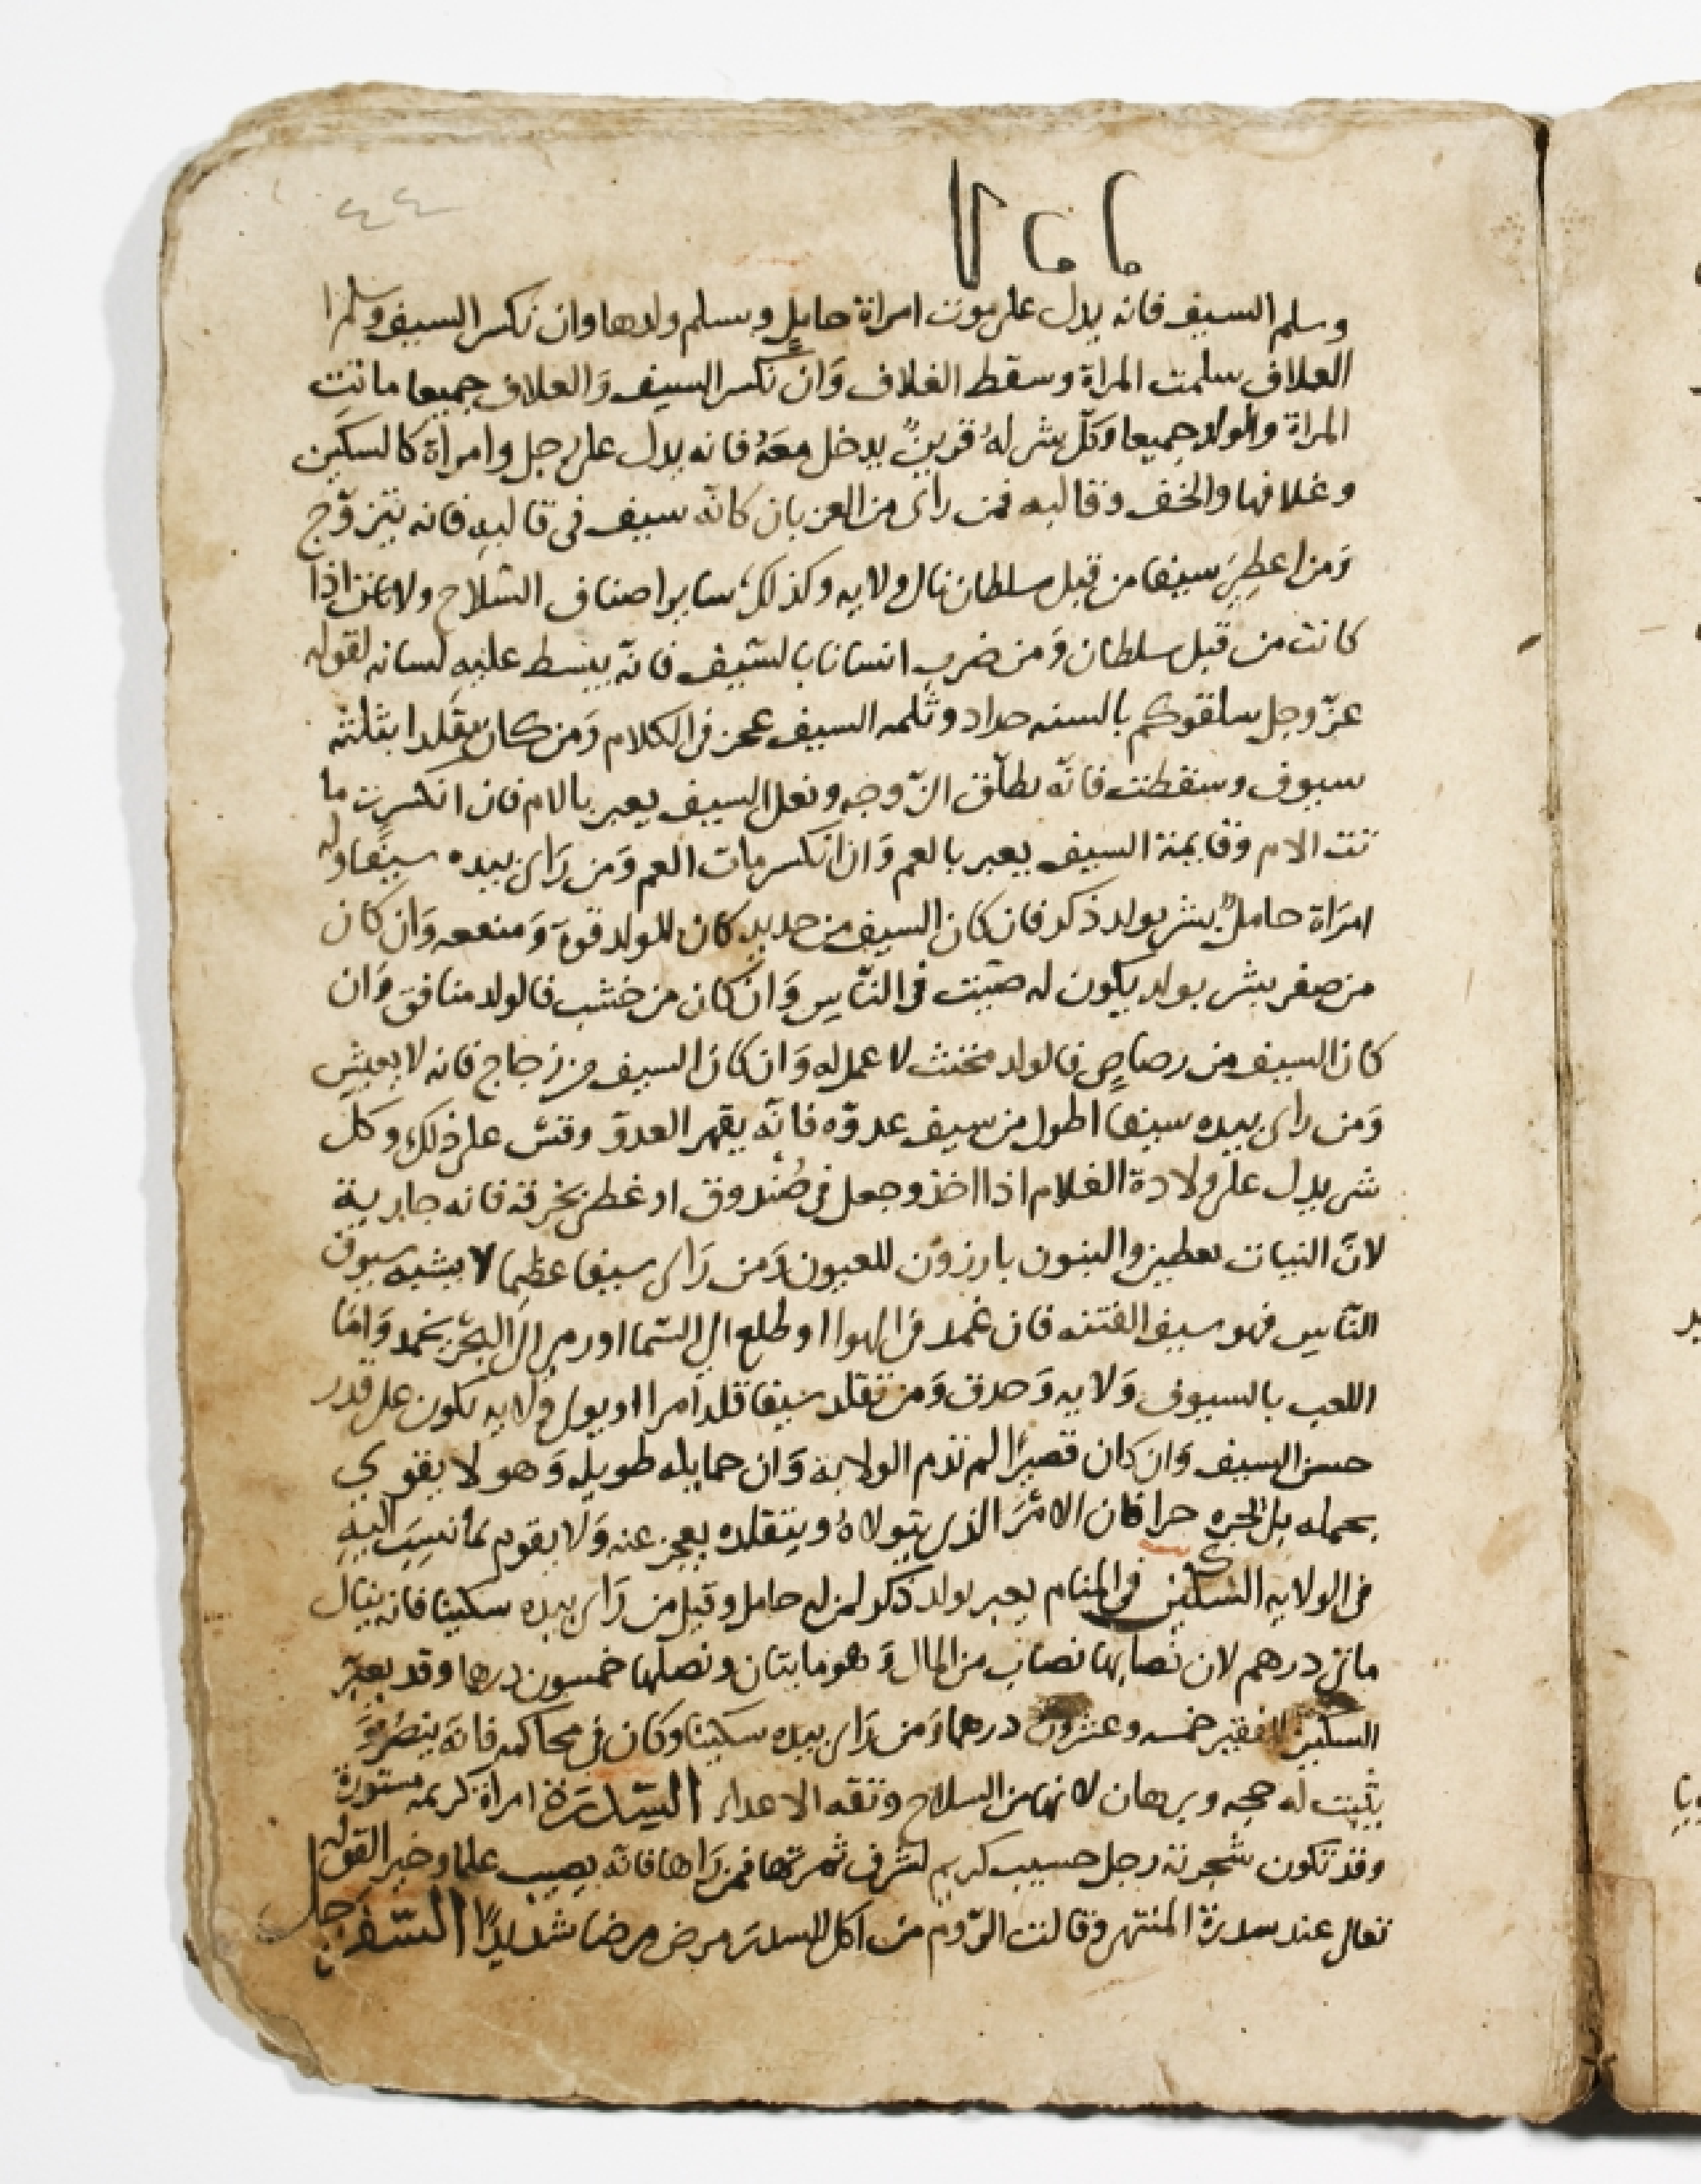 ٤٤
وسلم السيف فانه يدل على موت امراة حامل ويسلم ولدها وان نكسر السيف وسلم
الغلاف سلمت المراة وسقط الغلاف وَان نكسر السيف وَالغلاف جميعا ماتت
المراة والولد جميعا وكلّ شى لهُ قرينٌ يدخل معَهُ فانه يدل على رجل وامراة كالسكين
وغلافها والخف وقالبه فمن راى من العزبان كانّه سيف فى قالبهِ فانه يتزوّج
وَمن اعطِىَ سيفا من قبل سلطان نال ولايه وكذلك ساير اصناف السّلاح ولا اذا
كانت من قبل سلطان وَمن ضرب انسانا بالسّيف فانّه يبسط عليهِ لسانه لقوله
عزّ وجل سلقوكم بالسنه حداد وثلمه السيف عجز فى الكلام وَمن كان يقلدا بثلثه
سيوف وسقطت فانّه يطلّق الزّوجه ونعل السيف يعبر بالام فان انكسرت ما
تت الام وقايمة السيف يعبر بالعم وَان انكسر مات العم وَمن رَاى بيده سيفًا وله
امرَاة حاملٌ بشر بولد ذكر فان كان السيف من حديد كان للولد قوة وَمنعه وَان كان
من صفر بشر بولد يكون له صيت فى النّاس وَان كان من خشب فالولد منافق وَان
كان السيف من رصاص فالولد مخنث لا عمل له وَان كان السيف من زجاج فانه لا يعيش
وَمن راى بيده سيفا اطول من سيف عدوّه فانّه يقهر العدوّ وقس على ذلك وكل
شى يدل على ولادة الغلام اذا اخذ وجعل فى صُندوق او غطى بخرقه فانه جارية
لانّ البنات تغطين والبنون بارزون للعيون وَمن رَاى سيفا عظيما لا يشبه سيوف
النّاس فهو سيف الفتنه فان غمد فى الهوا او طلع الى السّما او رمى الى البحْر يخمد وَامّا
اللعب بالسيوف وَلايه وَحدق وَمن تقلد سيفا قلد امرا او يولى ولايه يكون على قدر
حسن السيف وَان كان قصيرًا لم تدم الولاية وَان حمايله طويله وَهو لا يقوى
بحمله بل يجره جرا فان الامْرَ الذى يتولاهُ ويتقلده يعجز عنه وَلا يقوم بما نسِبَ اليهِ
فى الولايه السكين فى المنام يعبر بولد ذكر لمن له حامل وقيل من رَاى بيده سكينا فانه ينال
ماتى درهم لان نصابها نصاب من المال وَهو مايتان ونصلها خمسون درهما وقد يعبّر
السكين للفقير خمسه وعشرون درهما وَمن رَاى بيده سكينا وكان فى محاكمه فانّه ينصُر وَ
يثبت له حجه وبرهان لانها من السلاح وتقه الاعداء السّدرَة امراة كريمه مستورة
وقد تكون شجرته رجل حسيب كريم لشرف ثمرتها فمن رَاها فانّه يصيب علما وخير القوله
تعالى عند سدرة المنتهى وقالت الرّوم من اكل السدر مرض مرضا شديدًا السّفرجل